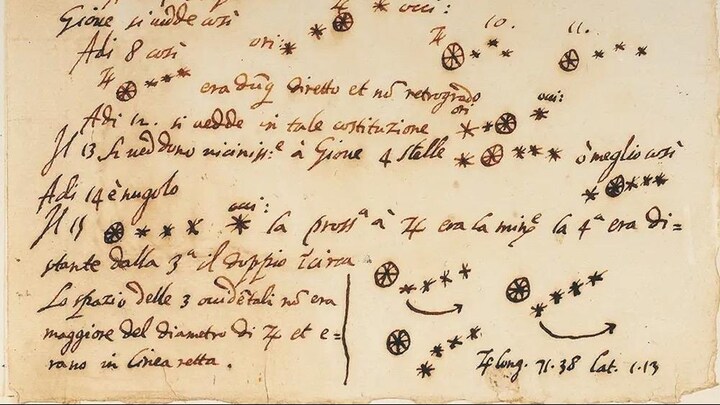 Gioue si uedde così
occi:
Adi 8 così
ori:
♃
10.
11.
♃
era dũq diretto et nõ retrogrado
Adi 12. si uedde in tale costituzione
ori
occi:
Jl 13 si ueddono uiciniss.e à Gioue 4 stelle
ò meglio così
Adi 14 è nugolo
Jl 15
occi:
la pross.a à ♃ era la min.e la 4.a era di=
stante dalla 3.a il doppio circa
Lo spazio delle 3 occidẽtali nõ era
maggiore del diametro di ♃ et e=
rano in linea retta.
♃ long. 71.38 lat. 1.13